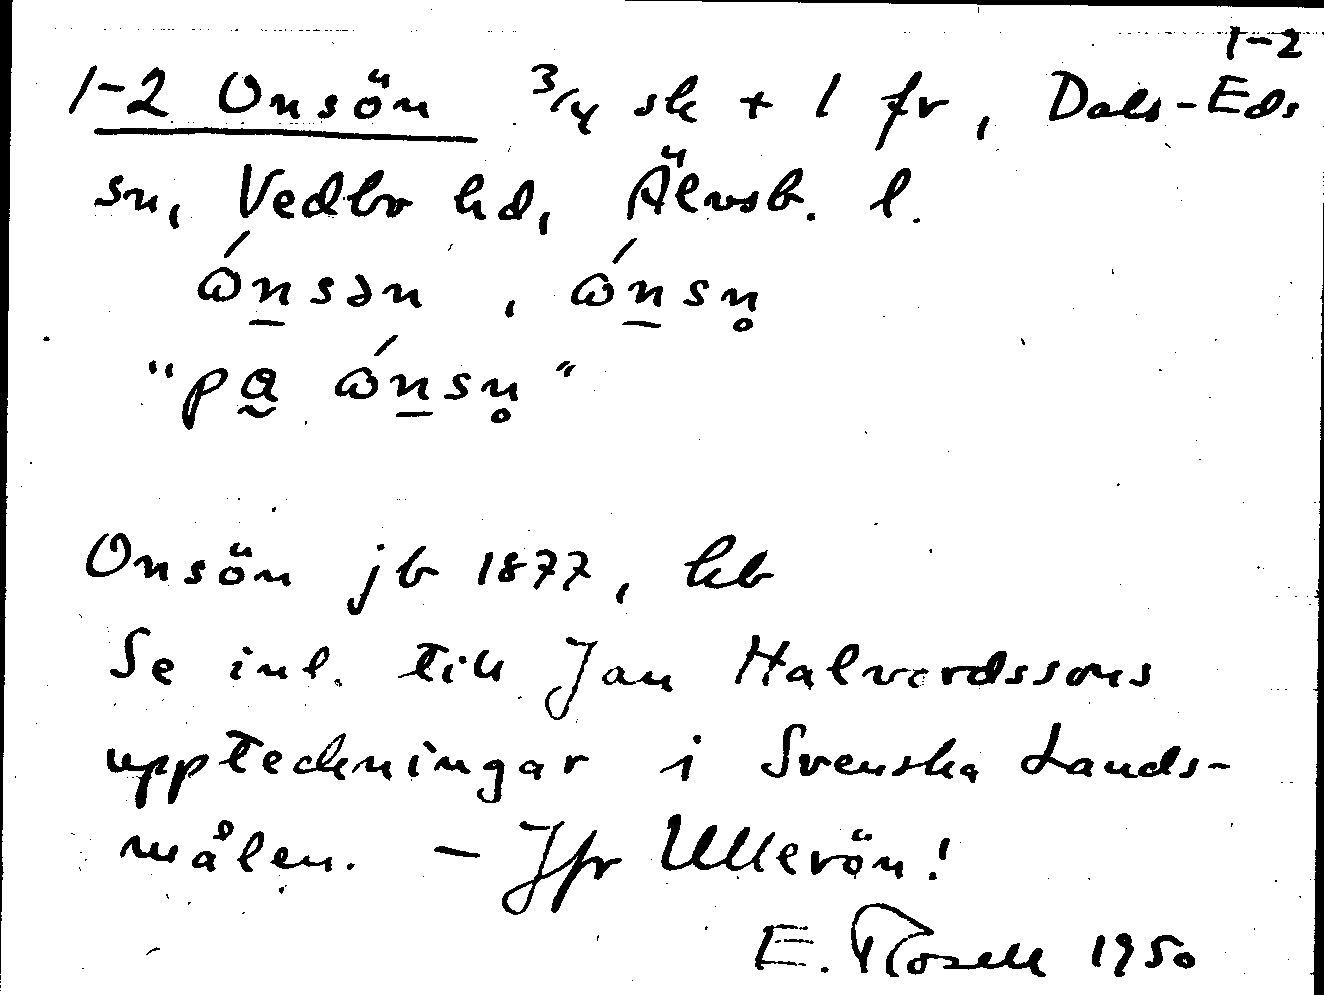 1-2
1-2 Onsön 3/4 sk + 1 fr, Dals-Eds
sn, Vedbo hd, Älvsb. l.
ώn̲sən, ώn̲sn̥
"pa̰ ώn̲sn̥"
Onsön jb 1877, kb
Se inl. till Jan Halvardssons
uppteckningar i Svenska Lands-
målen. - Jfr Ullerön!
E. Rosell 1950